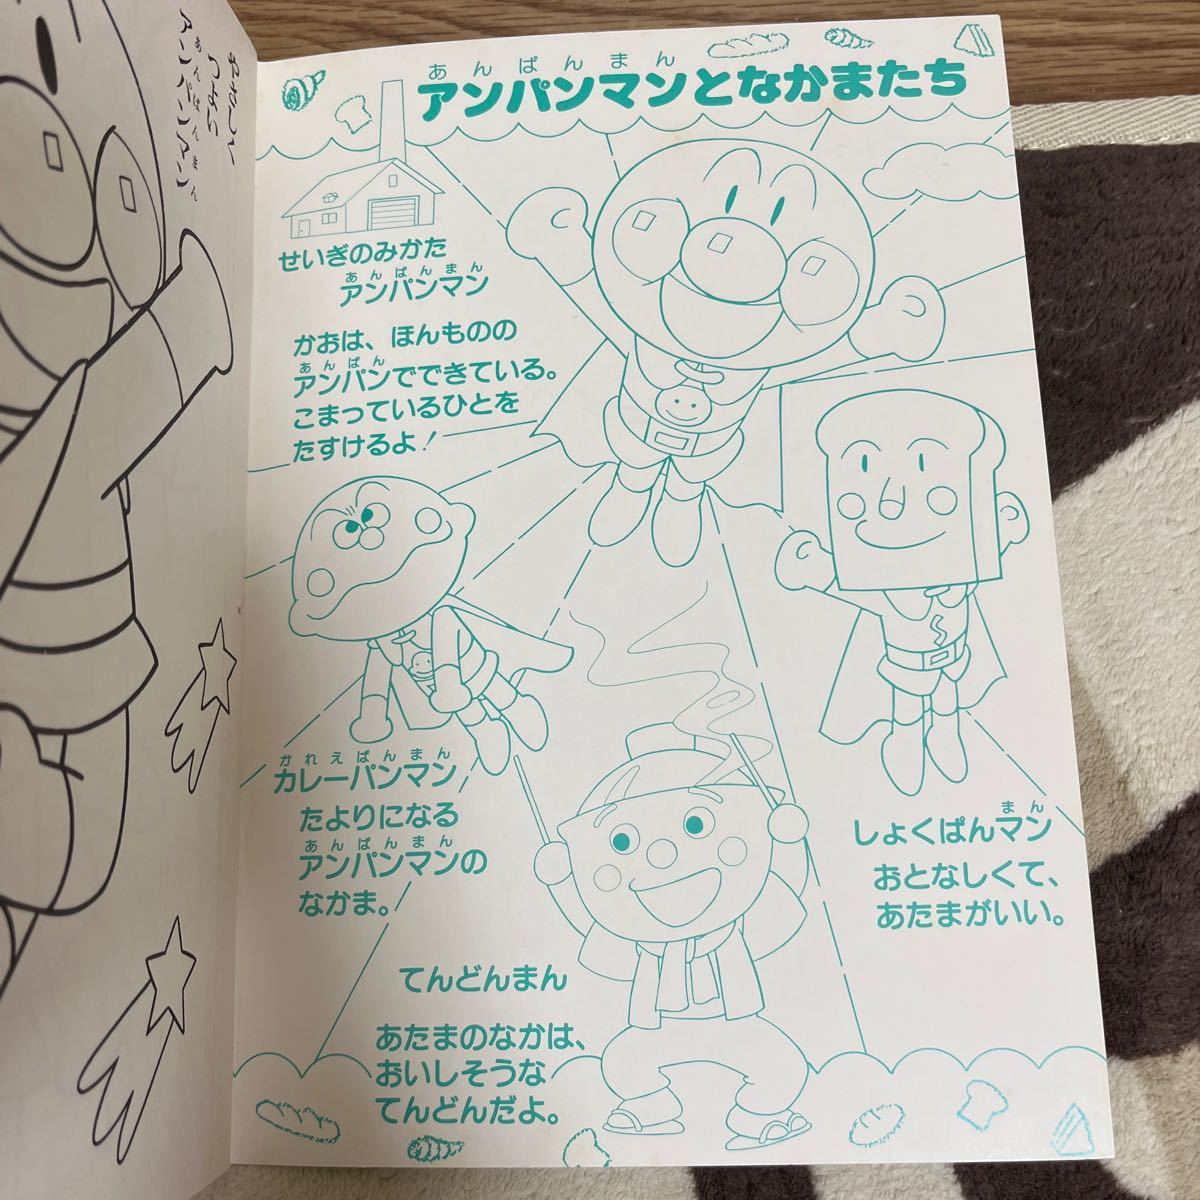 やさしく
つよい
あんぱんまん
アンパンマン
あんぱんまん
アンパンマンとなかまたち
せいぎのみかた
あんぱんまん
アンパンマン
かおは、ほんものの
あんぱん
アンパンでできている。
こまっているひとを
たすけるよ!
かれえぱんまん
カレーパンマン
たよりになる
あんぱんまん
アンパンマンの
なかま。
まん
しょくぱんマン
おとなしくて、
あたまがいい。
てんどんまん
あたまのなかは、
おいしそうな
てんどんだよ。